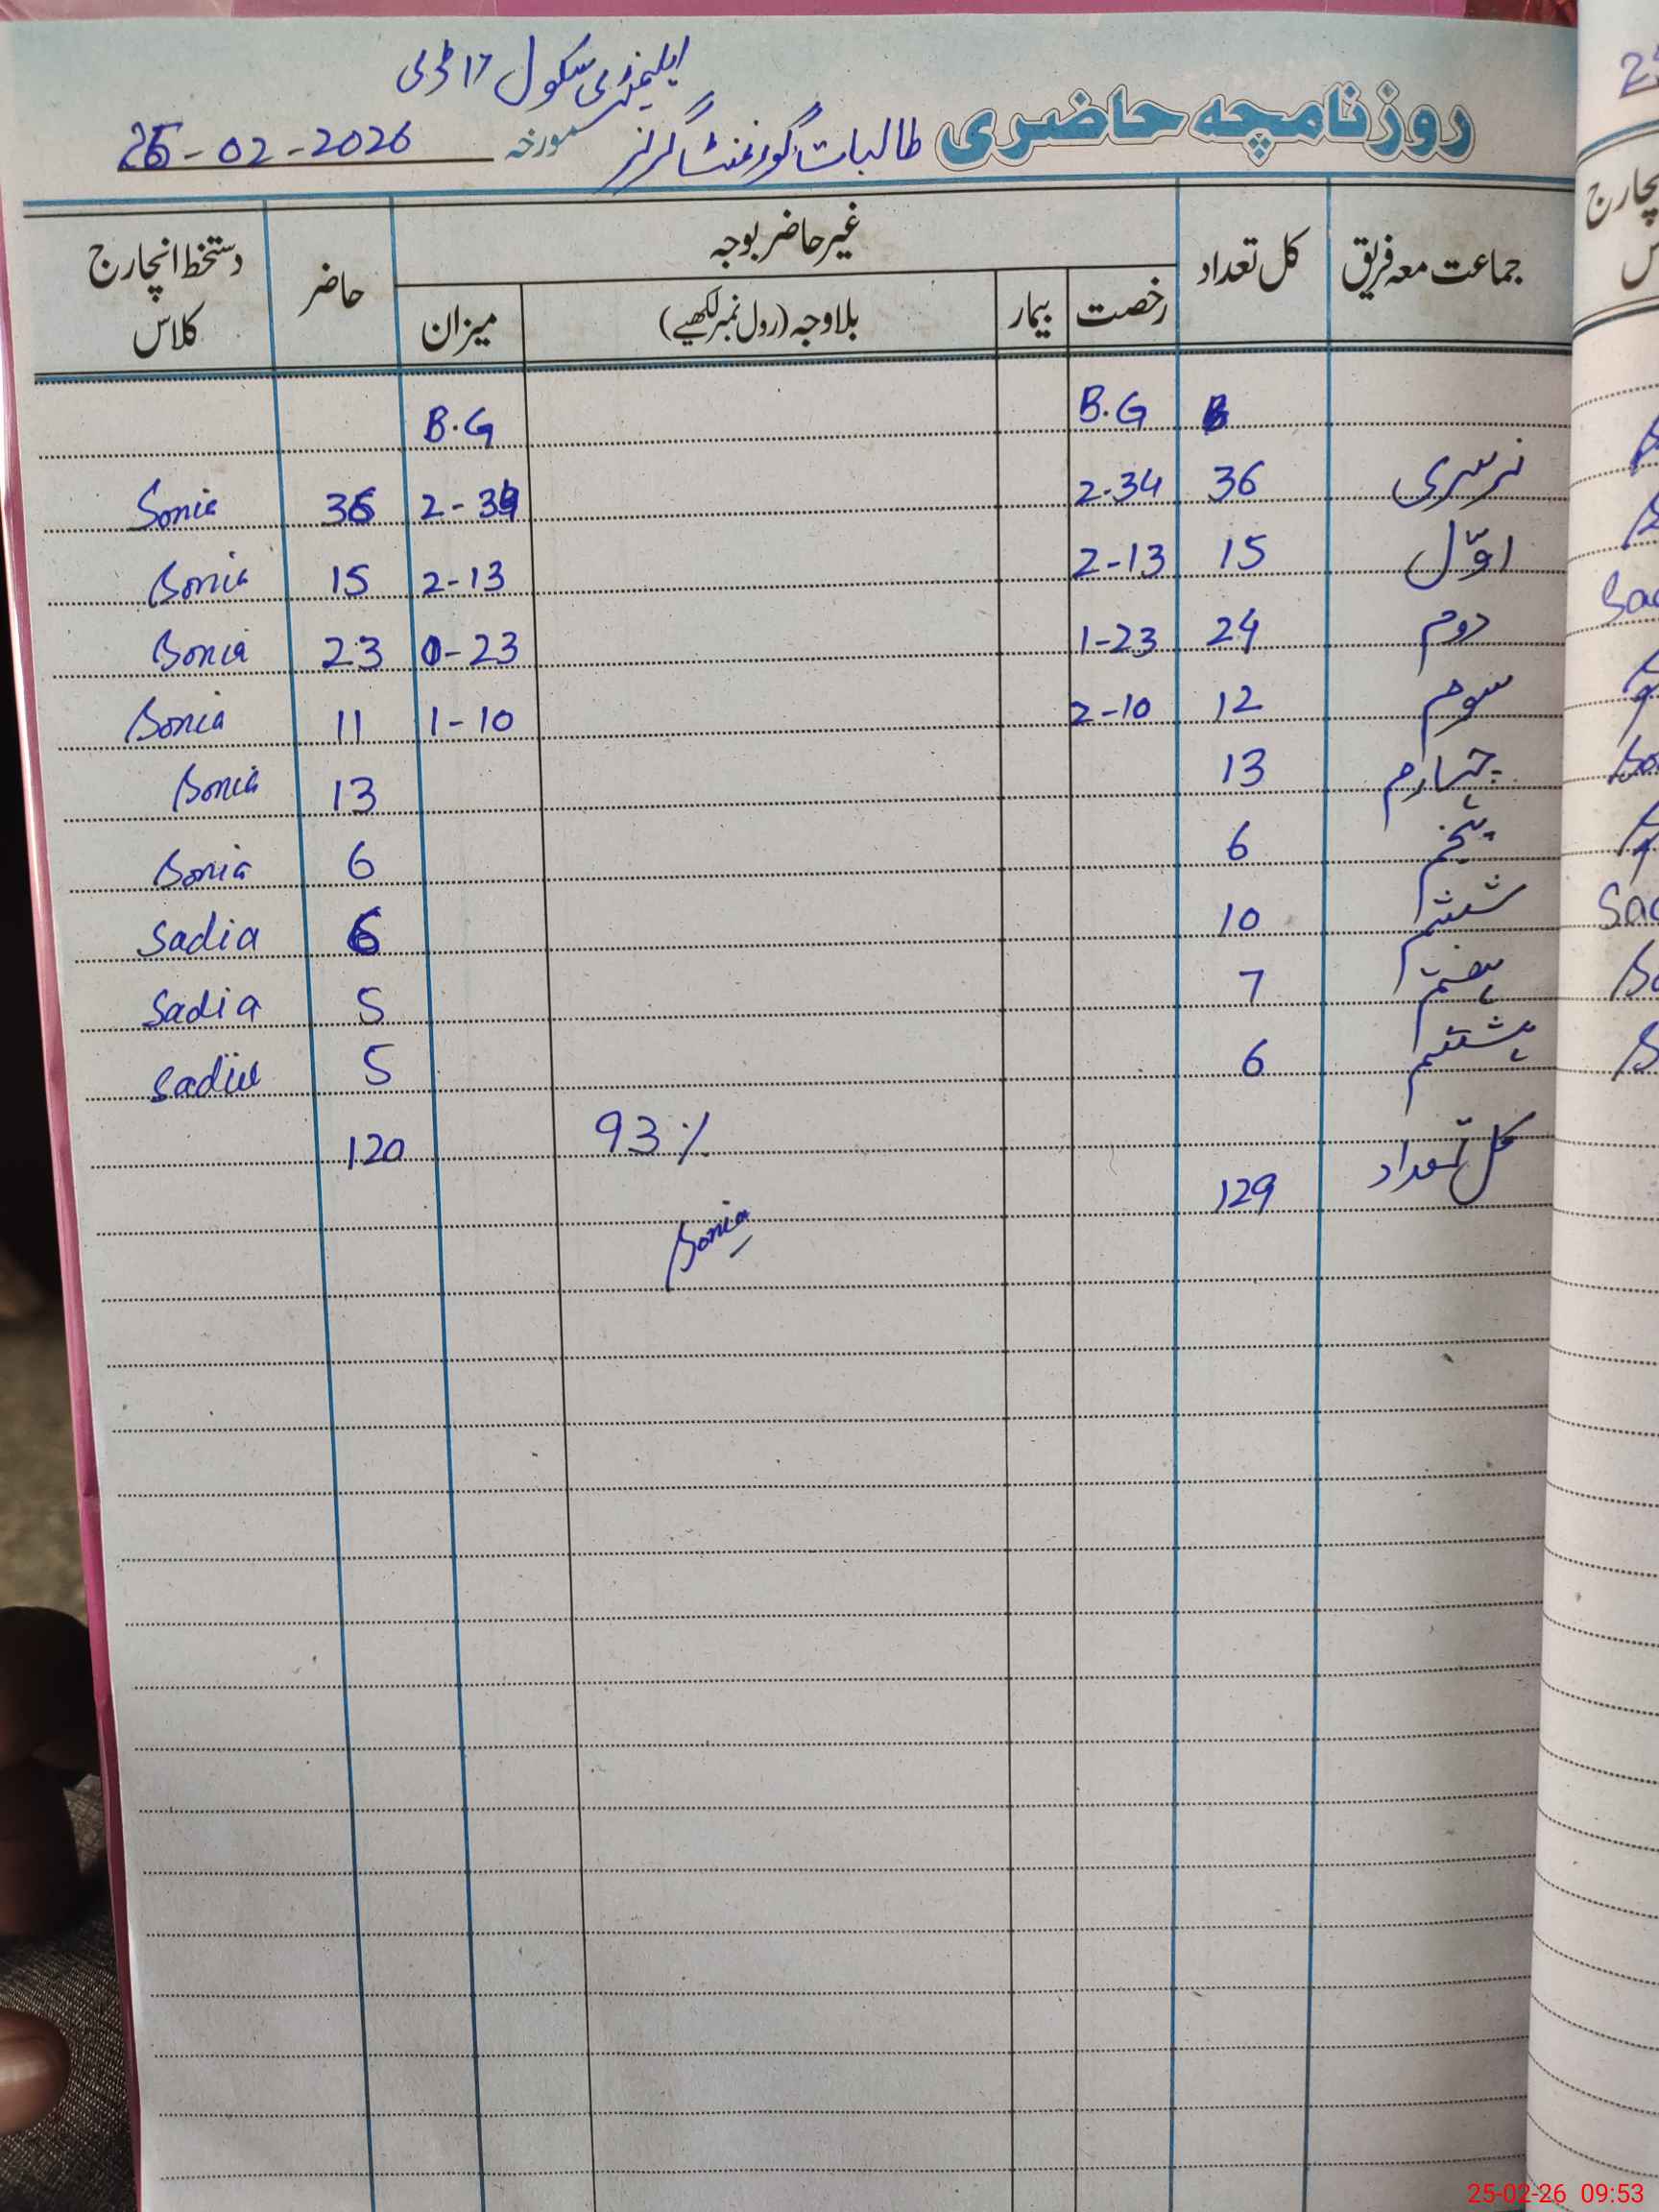 ایلیمنٹری سکول 17 ڈی
روزنامچہ حاضری طالبات گورنمنٹ گرلز مورخہ 25-02-2026
جماعت معہ فریق کل تعداد غیر حاضر بوجہ حاضر دستخط انچارج کلاس
رخصت بیمار بلاوجہ (رول نمبر لکھیے) میزان
B.G B.G
نرسری 36 2-34 2-34 36 Sonia
اوّل 15 2-13 2-13 15 Sonia
دوم 24 1-23 0-23 23 Sonia
سوم 12 2-10 1-10 11 Sonia
چہارم 13 13 Sonia
پنجم 6 6 Sonia
ششم 10 6 Sadia
ہفتم 7 5 Sadia
ہشتم 6 5 Sadia
93% 120
کل تعداد 129
Sonia
چارج
س
Sad
Sad
25-02-26 09:53